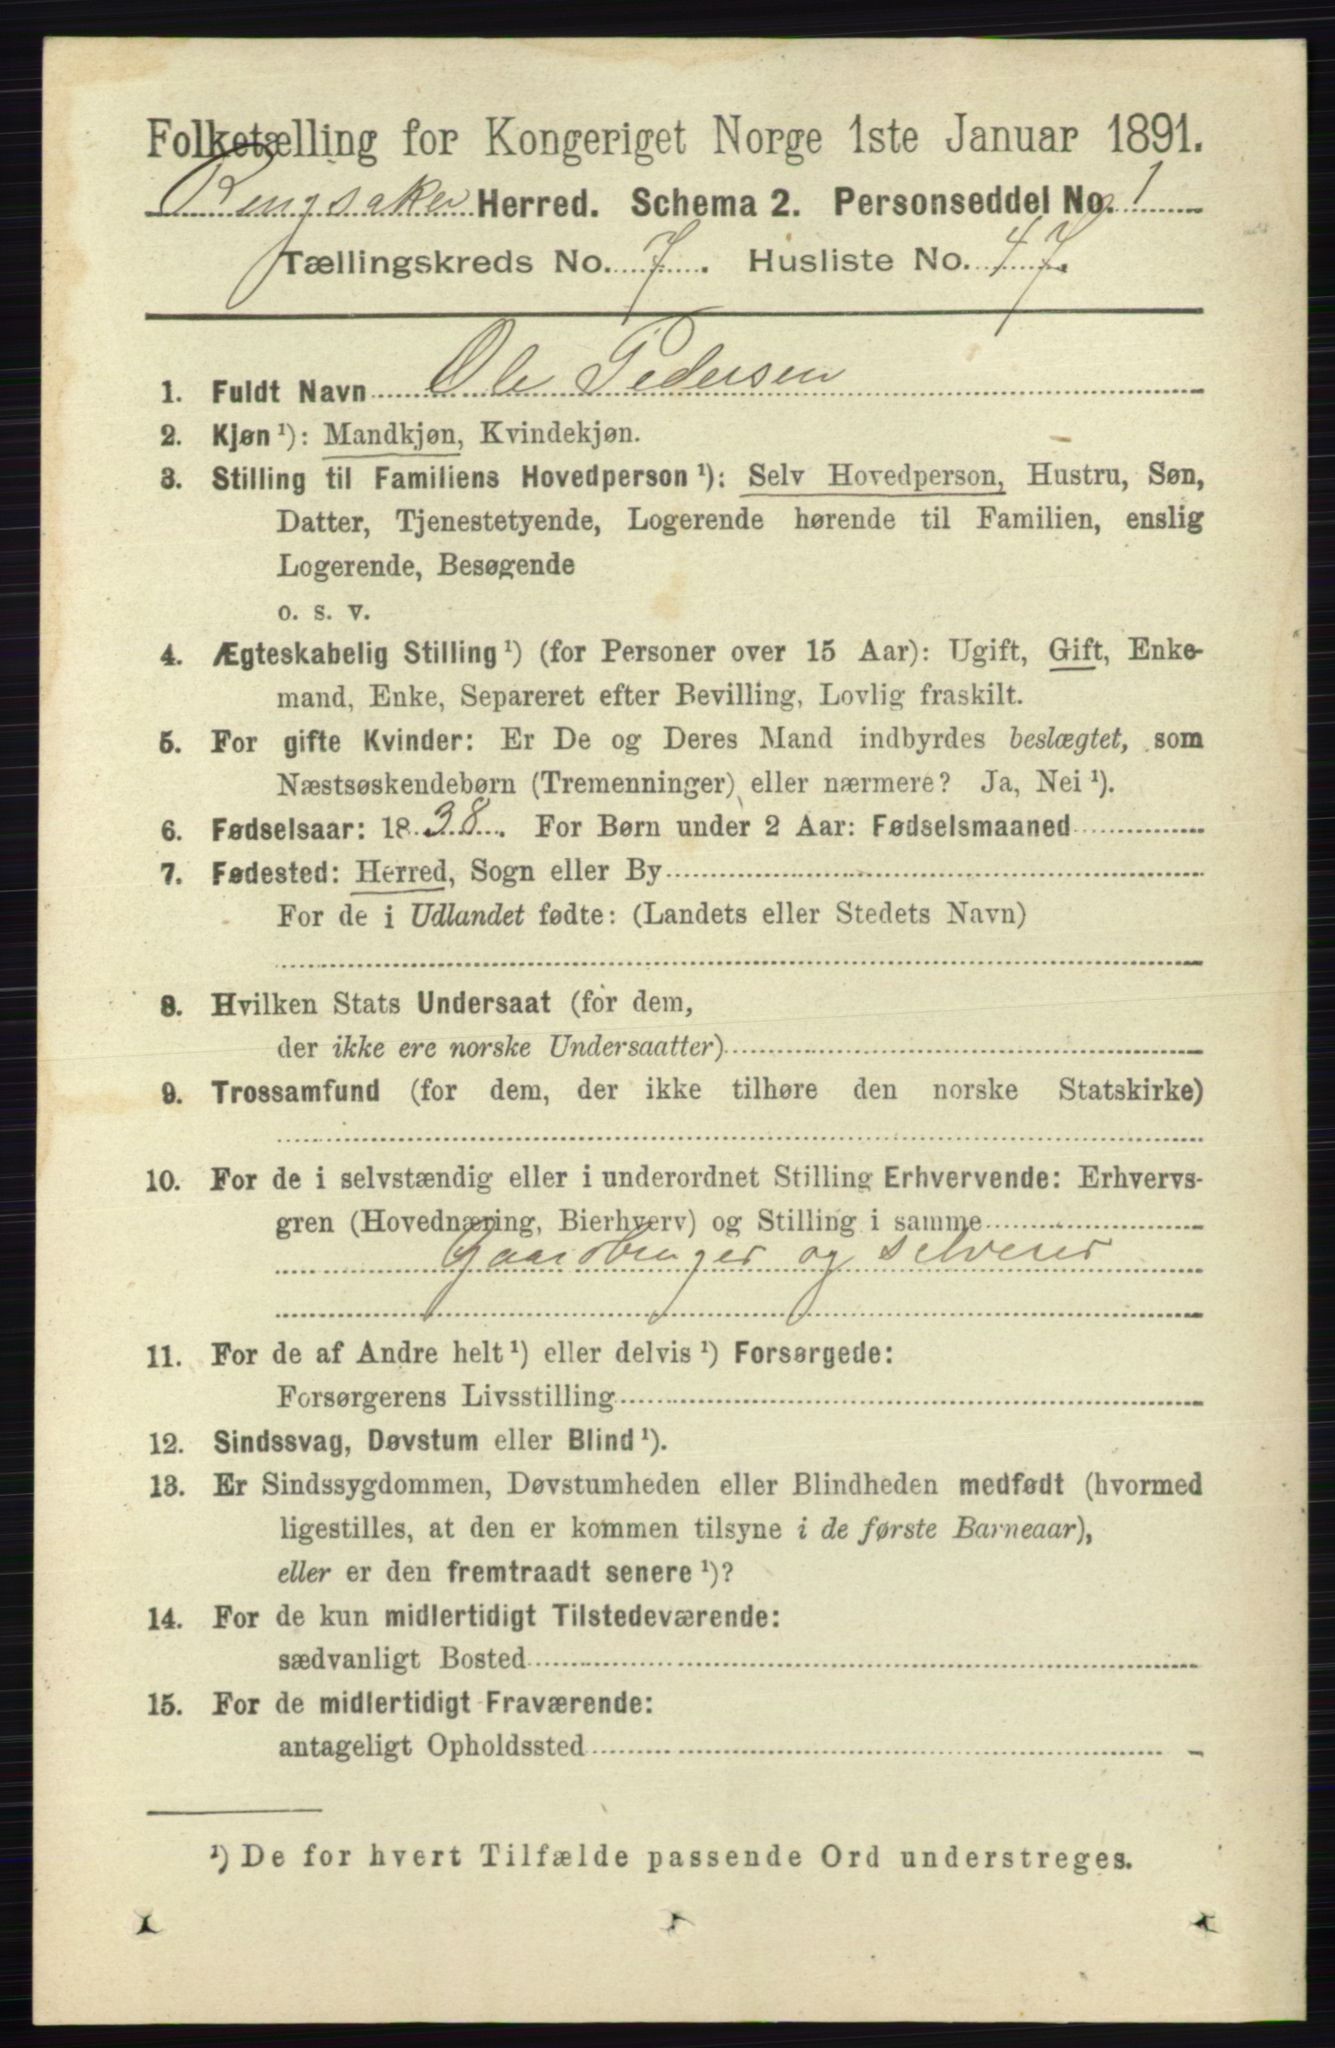 Folketælling for Kongeriget Norge 1ste Januar 1891.
Ringsaker Herred. Schema 2. Personseddel No. 1
Tællingskreds No. 7. Husliste No. 47.
1. Fuldt Navn Ole Pedersen
2. Kjøn ¹): Mandkjøn, Kvindekjøn.
3. Stilling til Familiens Hovedperson ¹): Selv Hovedperson, Hustru, Søn,
Datter, Tjenestetyende, Logerende hørende til Familien, enslig
Logerende, Besøgende
o. s. v.
4. Ægteskabelig Stilling ¹) (for Personer over 15 Aar): Ugift, Gift, Enke-
mand, Enke, Separeret efter Bevilling, Lovlig fraskilt.
5. For gifte Kvinder: Er De og Deres Mand indbyrdes beslægtet, som
Næstsøskendebørn (Tremenninger) eller nærmere? Ja, Nei ¹).
6. Fødselsaar: 1838. For Børn under 2 Aar: Fødselsmaaned
7. Fødested: Herred, Sogn eller By
For de i Udlandet fødte: (Landets eller Stedets Navn)
8. Hvilken Stats Undersaat (for dem,
der ikke ere norske Undersaatter)
9. Trossamfund (for dem, der ikke tilhøre den norske Statskirke)
10. For de i selvstændig eller i underordnet Stilling Erhvervende: Erhvervs-
gren (Hovednæring, Bierhverv) og Stilling i samme
Gaardbruger og selveier
11. For de af Andre helt ¹) eller delvis ¹) Forsørgede:
Forsørgerens Livsstilling
12. Sindssvag, Døvstum eller Blind ¹).
13. Er Sindssygdommen, Døvstumheden eller Blindheden medfødt (hvormed
ligestilles, at den er kommen tilsyne i de første Barneaar),
eller er den fremtraadt senere ¹)?
14. For de kun midlertidigt Tilstedeværende:
sædvanligt Bosted
15. For de midlertidigt Fraværende:
antageligt Opholdssted
¹) De for hvert Tilfælde passende Ord understreges.